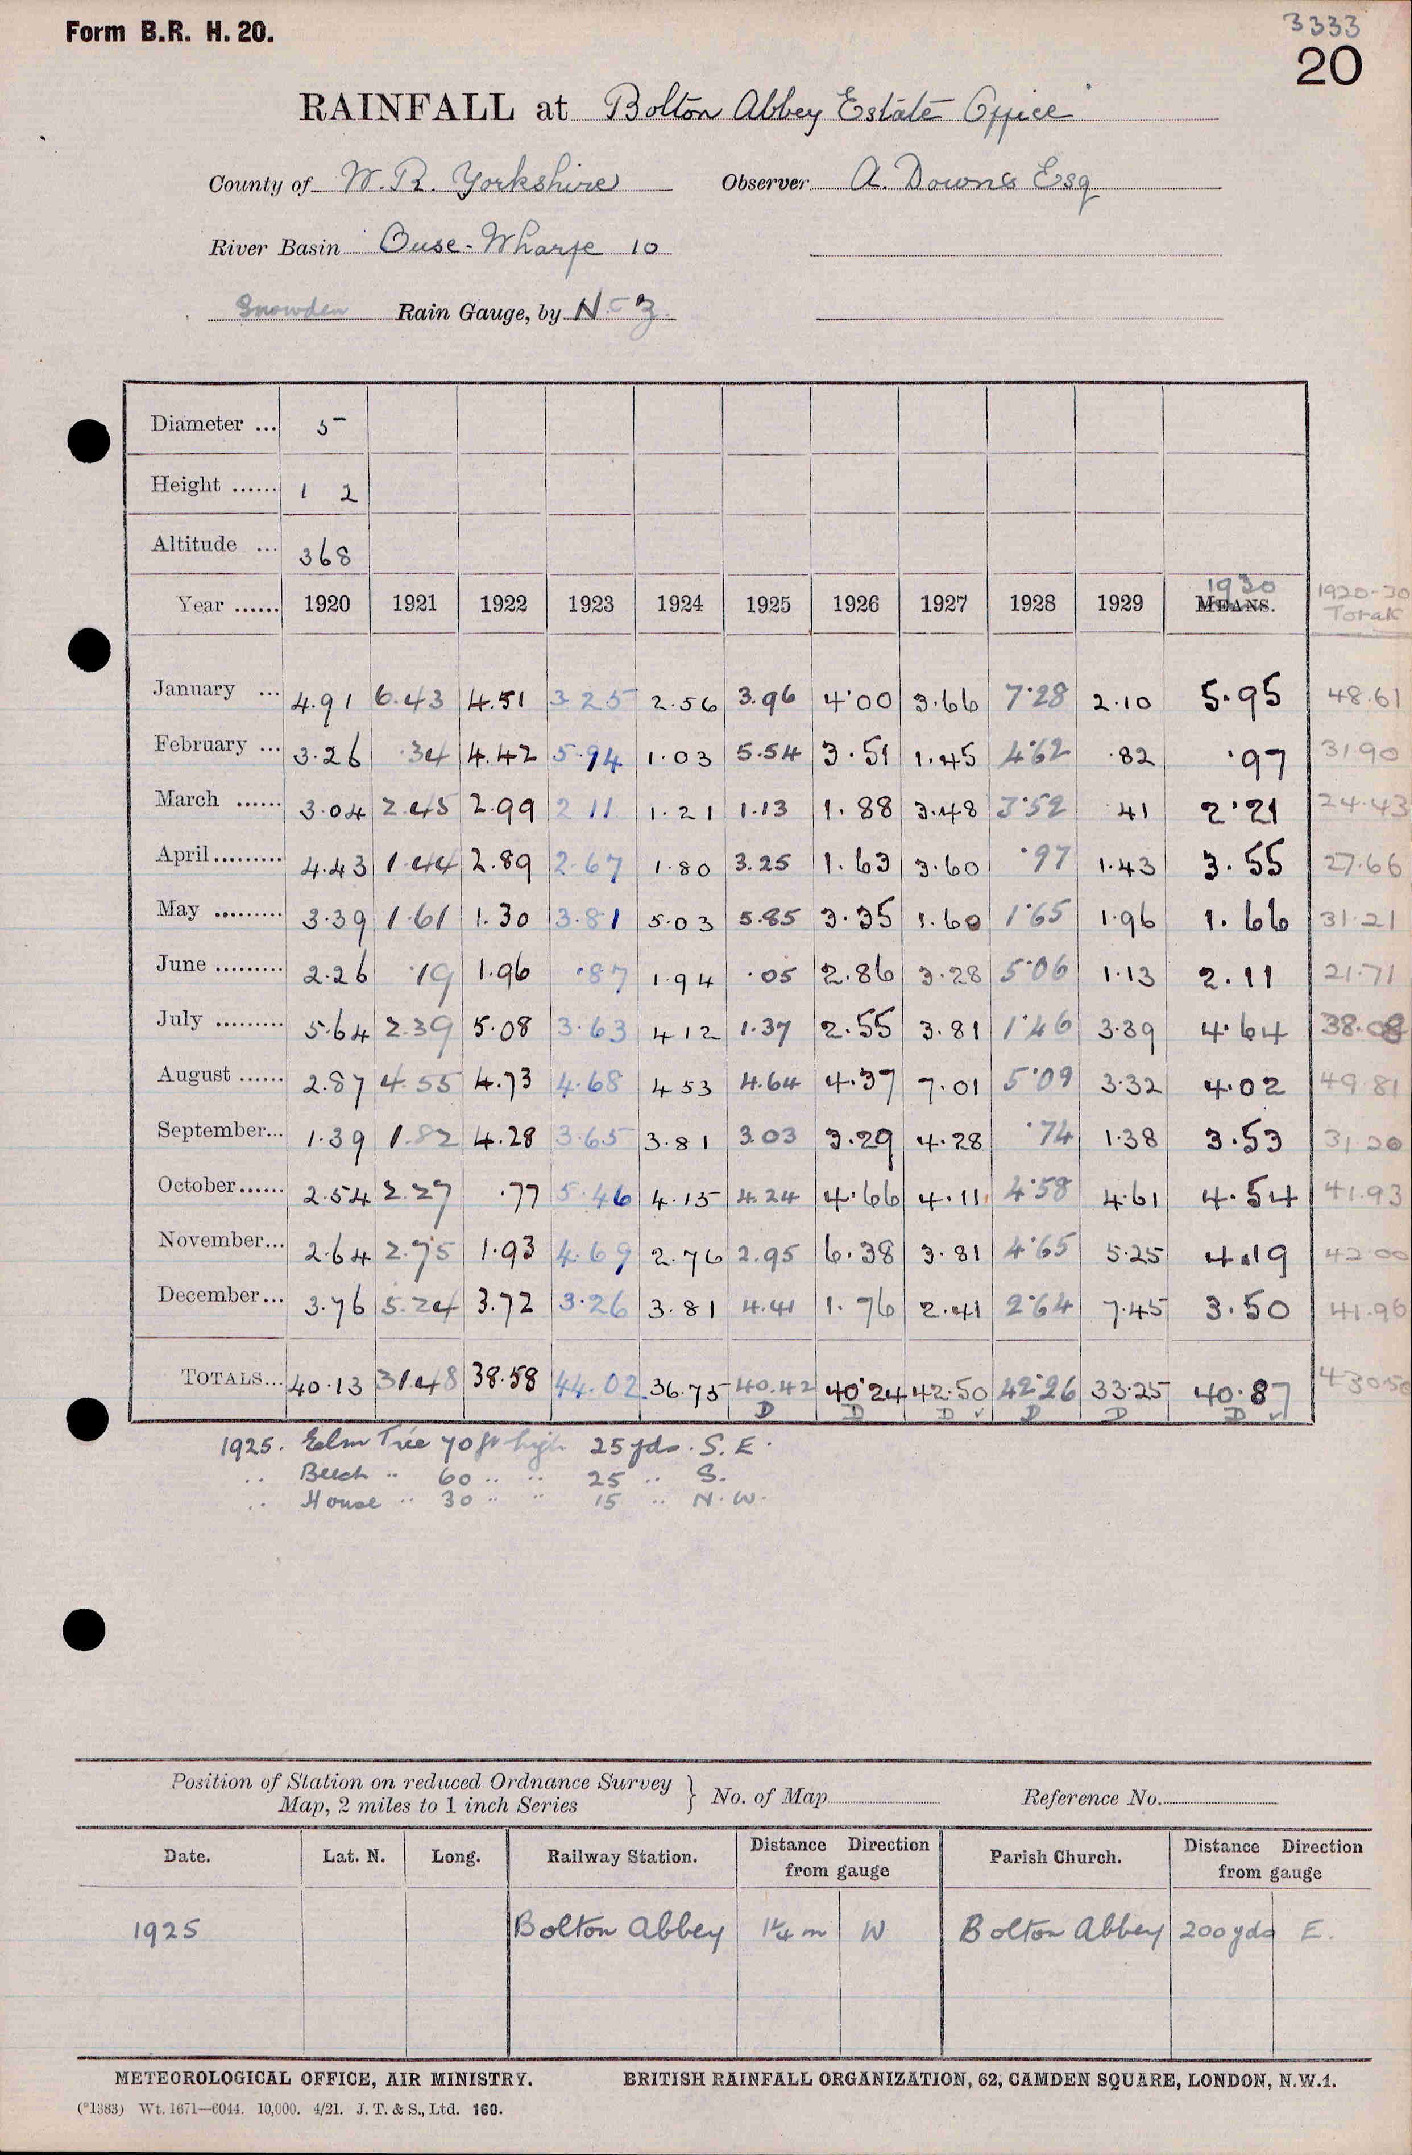 Form B.R. H. 20.
3333
20
RAINFALL at Bolton Abbey Estate Office
County of W. R. Yorkshire Observer A. Downs Esq
River Basin Ouse-Wharfe 10
Snowden Rain Gauge, by N-Z
Diameter ... 5
Height ...... 1 2
Altitude ... 368
Year ...... 1920 1921 1922 1923 1924 1925 1926 1927 1928 1929 MEANS. 1930 1920-30 Totals
January ... 4.91 6.43 4.51 3.25 2.56 3.96 4.00 3.66 7.28 2.10 5.95 48.61
February ... 3.26 .34 4.42 5.94 1.03 5.54 3.51 1.45 4.62 .82 .97 31.90
March ...... 3.04 2.45 2.99 2.11 1.21 1.13 1.88 3.48 3.52 .41 2.21 24.43
April ......... 4.43 1.44 2.89 2.67 1.80 3.25 1.63 3.60 .97 1.43 3.55 27.66
May ......... 3.39 1.61 1.30 3.81 5.03 5.85 3.35 1.60 1.65 1.96 1.66 31.21
June ......... 2.26 .19 1.96 .87 1.94 .05 2.86 3.28 5.06 1.13 2.11 21.71
July ......... 5.64 2.39 5.08 3.63 4.12 1.37 2.55 3.81 1.46 3.39 4.64 38.08
August ...... 2.87 4.55 4.73 4.68 4.53 4.64 4.37 7.01 5.09 3.32 4.02 49.81
September... 1.39 1.82 4.28 3.65 3.81 3.03 3.29 4.28 .74 1.38 3.53 31.20
October...... 2.54 2.27 .77 5.46 4.15 4.24 4.66 4.11 4.58 4.61 4.54 41.93
November... 2.64 2.75 1.93 4.69 2.76 2.95 6.38 3.81 4.65 5.25 4.19 42.00
December... 3.76 5.24 3.72 3.26 3.81 4.41 1.76 2.41 2.64 7.45 3.50 41.96
TOTALS... 40.13 31.48 38.58 44.02 36.75 40.42 40.24 42.50 42.26 33.25 40.87 430.50
D D D ✓ D D D ✓
1925. Elm Tree 70 ft high 25 yds. S. E.
.. Beech .. 60 .. .. 25 .. S.
.. House .. 30 .. .. 15 .. N. W.
Position of Station on reduced Ordnance Survey Map, 2 miles to 1 inch Series } No. of Map Reference No.
Date. Lat. N. Long. Railway Station. Distance Direction from gauge Parish Church. Distance Direction from gauge
1925 Bolton Abbey 1¼ m W Bolton Abbey 200 yds E.
METEOROLOGICAL OFFICE, AIR MINISTRY. BRITISH RAINFALL ORGANIZATION, 62, CAMDEN SQUARE, LONDON, N.W.1.
(*1383) Wt. 1671—6044. 10,000. 4/21. J. T. & S., Ltd. 160.